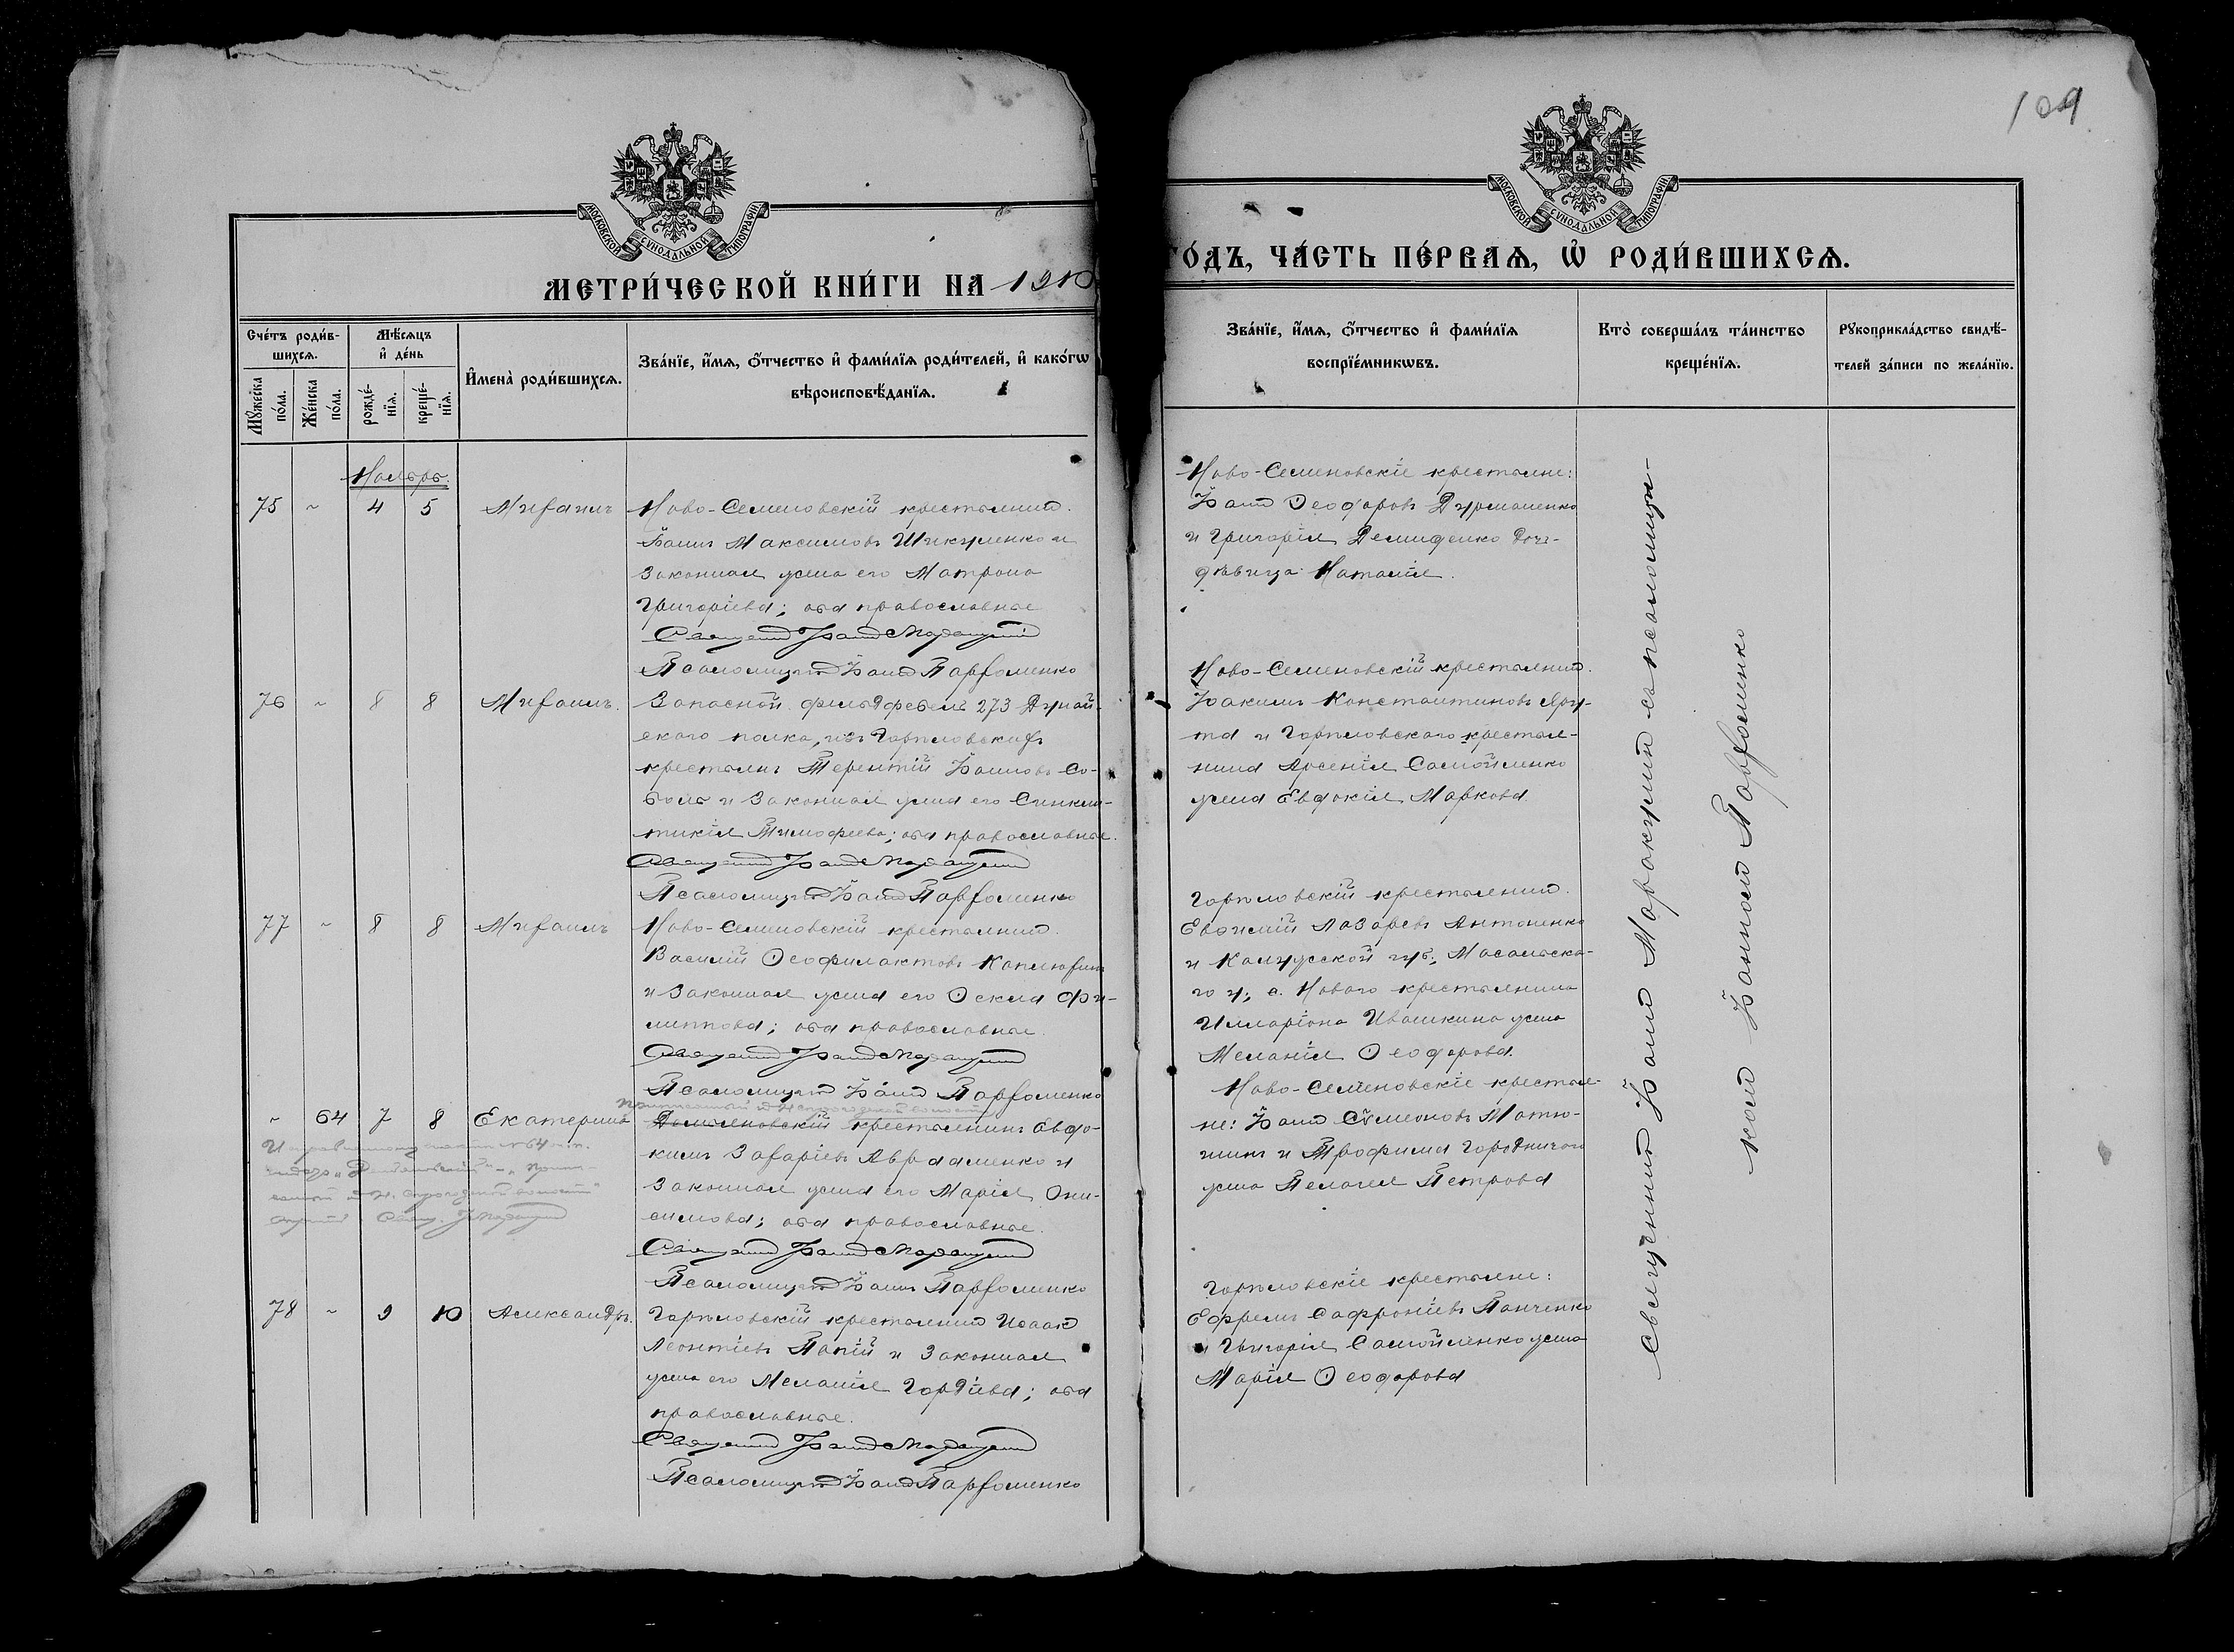 109
МОСКОВСКОЙ СѴНОДАЛЬНОЙ ТИПОГРАФІИ
МОСКОВСКОЙ СѴНОДАЛЬНОЙ ТИПОГРАФІИ
МЕТРИ́ЧЕСКОЙ КНИ́ГИ НА 1910
ГО́ДЪ, ЧА́СТЬ ПЕ́РВАѦ, Ѡ҆ РОДИ́ВШИХСѦ.
Сче́тъ роди́в-
шихсѧ.
Мꙋ́жеска по́ла.
Же́нска по́ла.
Мѣ́сѧцъ
и҆ де́нь
рожде́-
нїѧ.
креще́-
нїѧ.
И҆мена̀ роди́вшихсѧ.
Зва́нїе, и҆́мѧ, ѻ҆́тчество и҆ фами́лїѧ роди́телей, и҆ како́гѡ
вѣроисповѣ́данїѧ.
Зва́нїе, и҆́мѧ, ѻ҆́тчество и҆ фами́лїѧ
воспрїе́мникѡвъ.
Кто̀ соверша́лъ та́инство
креще́нїѧ.
Рꙋкоприкла́дство свидѣ́-
телей за́писи по жела́нїю.
Ноябрь.
75 ~ 4 5 Михаилъ
Ново-Семеновскій крестьянин.
Іоаннъ Максимовъ Шикуленко и
законная жена его Матрона
Григоріева; оба православные
Священник Іоанн
Псаломщик Іоанн Пархоменко
Ново-Семеновскіе крестьяне:
Іоанн Ѳеодоровъ Дурманенко
и Григорія Демиденко дочь-
дѣвица Наталія.
76 ~ 8 8 Михаилъ.
Запасной фельдфебель 273 Дунай-
скаго полка, изъ Горѣловскихъ
крестьянъ Терентій Іоанновъ Со-
боль и законная жена его Синкли-
тикія Тимофеева; оба православные.
Священник Іоанн
Псаломщик Іоанн Пархоменко
Ново-Семеновскій крестьянин.
Іоакимъ Константиновъ Яру-
та и Горѣловскаго крестья-
нина Арсенія Самойленко
жена Евдокія Маркова
77 ~ 8 8 Михаилъ
Ново-Семеновскій крестьянин.
Василій Ѳеофилактовъ Каплюхинъ
и законная жена его Ѳекла Фи-
липпова; оба православные.
Священник Іоанн
Псаломщик Іоанн Пархоменко
Горѣловскій крестьянин.
Евѳимій Лазаревъ Антоненко
и Калужской губ., Масальска-
го у., с. Новаго крестьянина
Илларіона Ивашкина жена
Меланія Ѳеодорова.
~ 64 7 8 Екатерина
крестьянинъ Евдо-
кимъ Захаріевъ Авраменко и
законная жена его Марія Они-
симова; оба православные.
Священник Іоанн
Псаломщик Іоаннъ Пархоменко
Ново-Семеновскіе крестья-
не: Іоанн Сѵмеоновъ Матю-
шинъ и Трофима Городничаго
жена Пелагея Петрова
78 ~ 9 10 Александръ.
Горѣловскій крестьянин Исаак
Леонтіевъ Папій и законная
жена его Меланія Гордіева; оба
православные.
Священник Іоанн
Псаломщик Іоанн Пархоменко
Горѣловскіе крестьяне:
Ефремъ Сафроніевъ Панченко
и Григорія Самойленко жена
Марія Ѳеодорова
Священник Іоанн съ псаломщи-
ком Іоанном Пархоменко